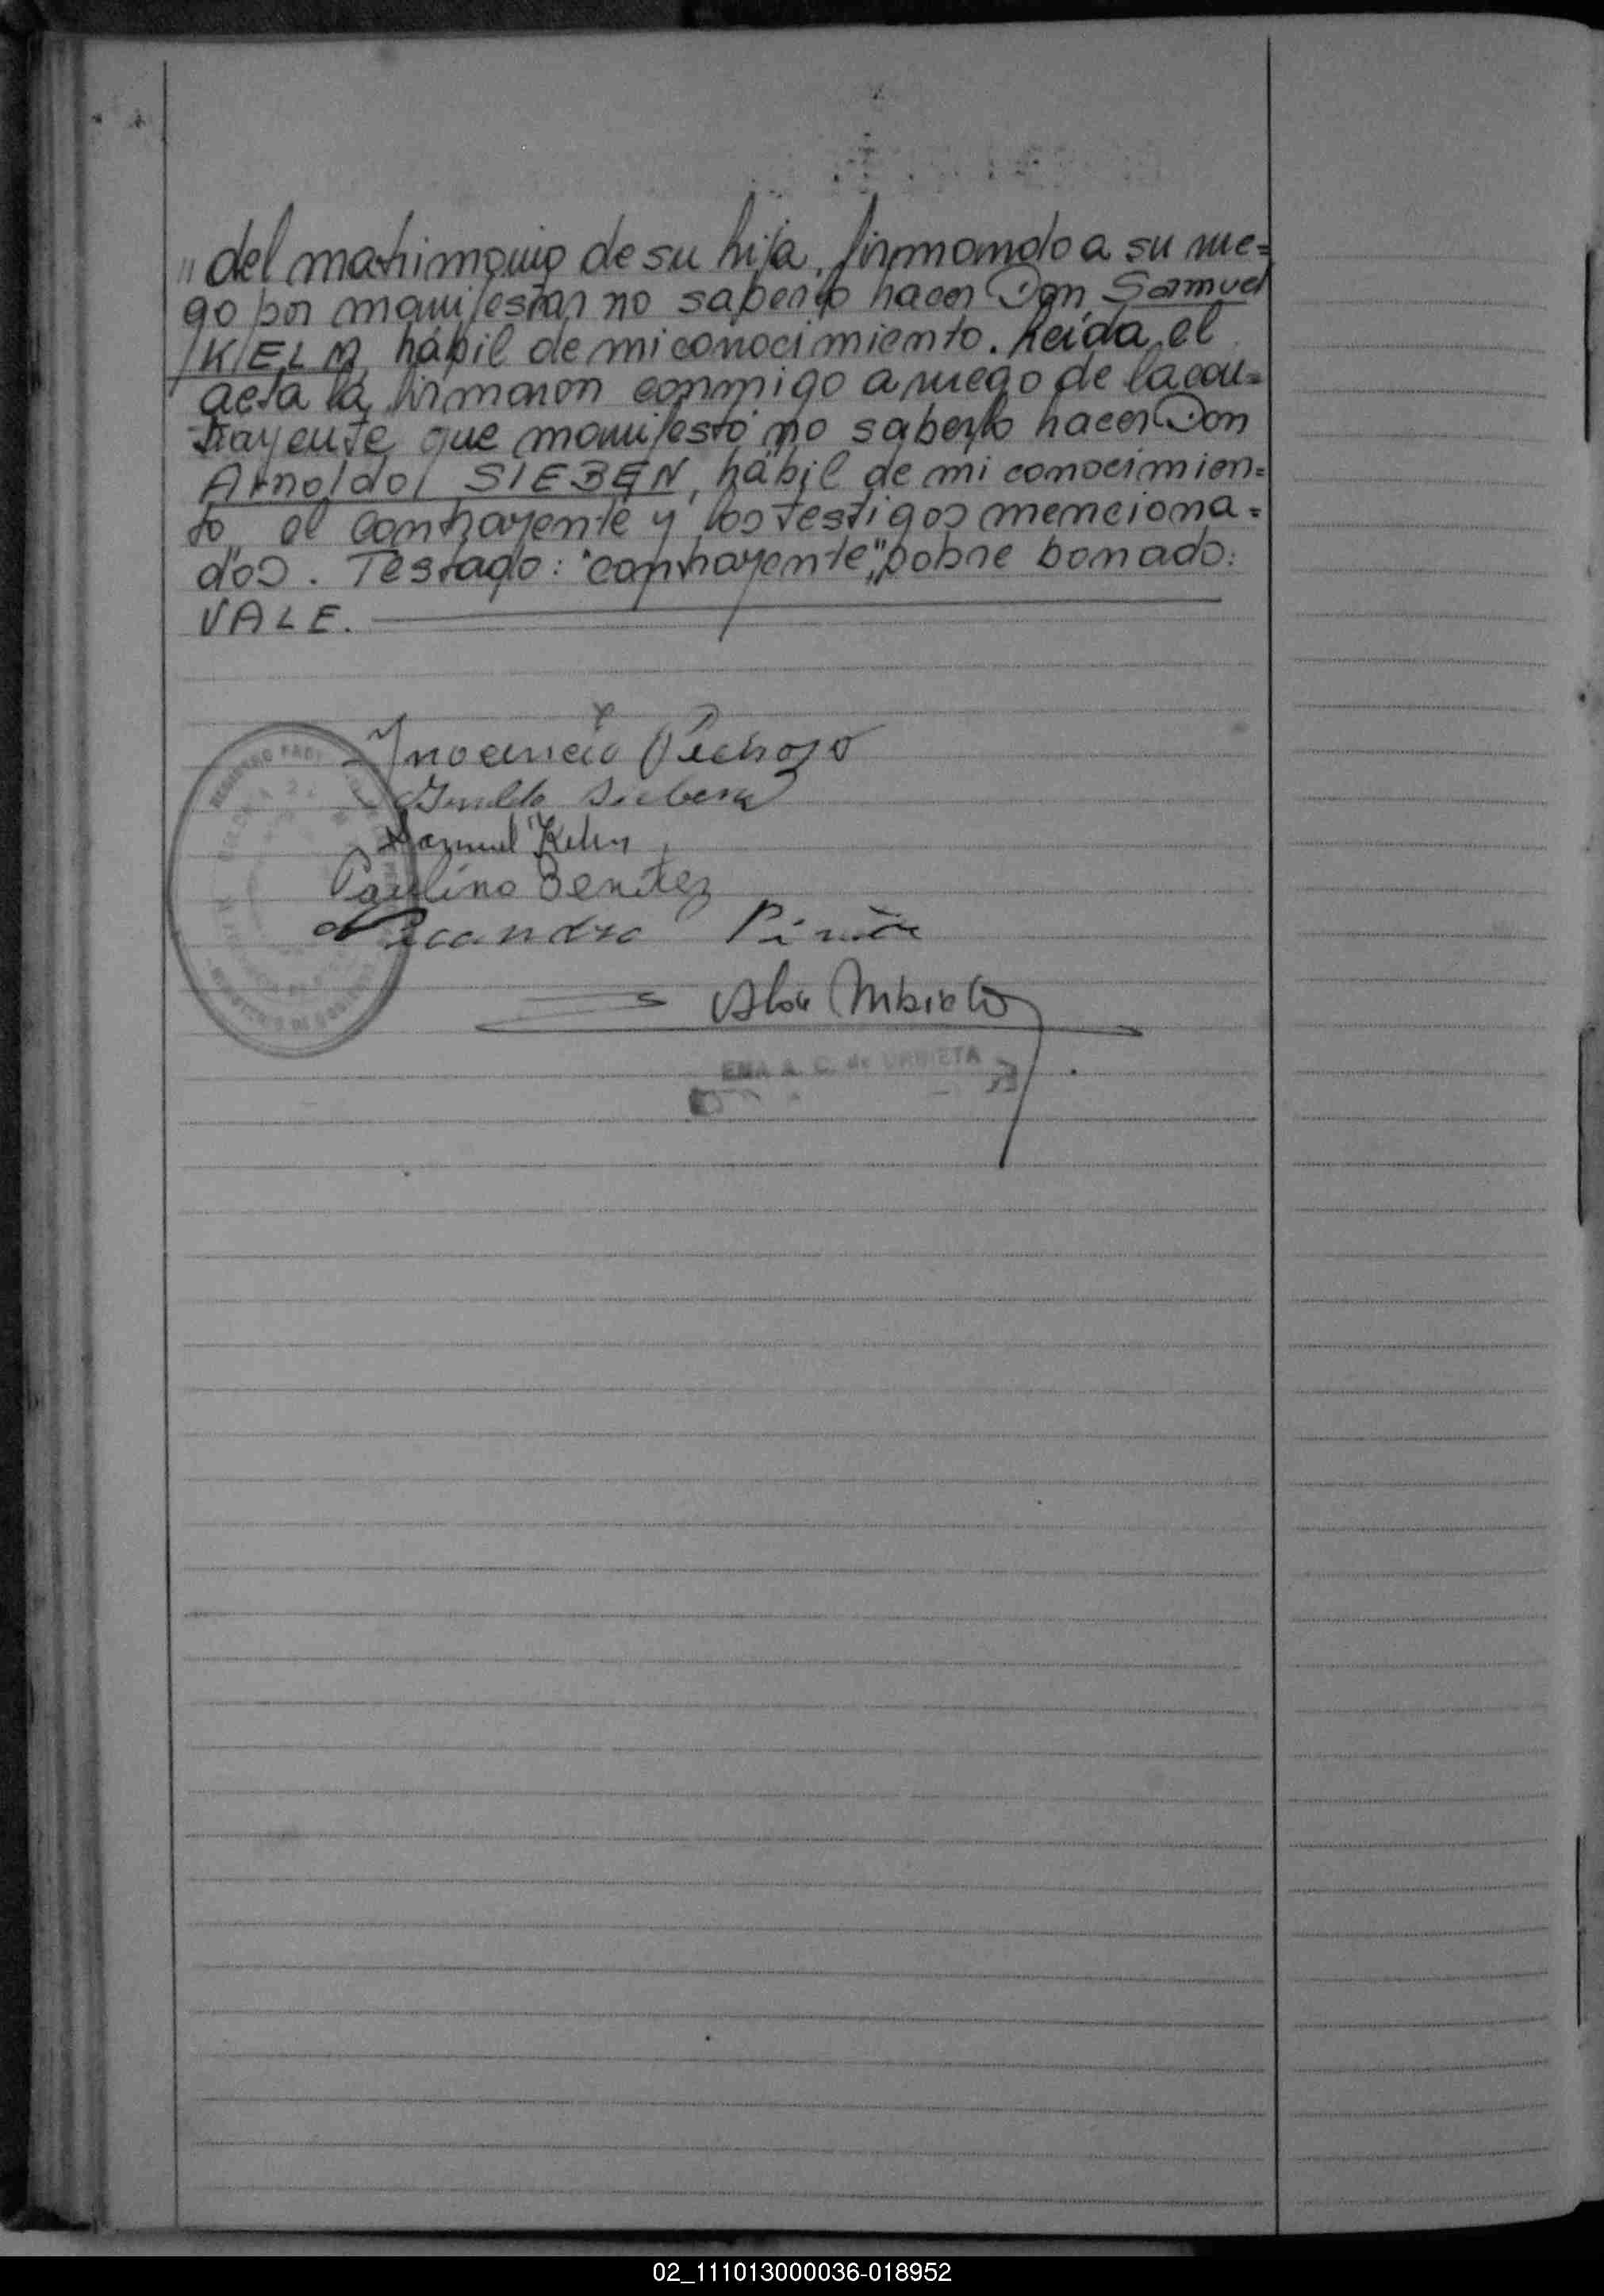 " del matrimonio de su hija, firmando a su rue=
go por manifestar no saberlo hacer Don Samuel
KELM, hábil de mi conocimiento. Leída el
acta la firmaron conmigo a ruego de la con=
trayente que manifestó no saberlo hacer Don
Arnoldo SIEBEN, hábil de mi conocimien=
to, el contrayente y los testigos menciona=
dos. Testado: "contrayente", sobre borrado:
VALE.
Inocencio Pedrozo
Sieben
Samuel Kelm
Paulino Benitez
EMA A. C. de URBIETA
02_111013000036-018952